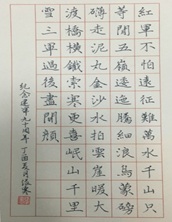 紅軍不怕遠征難萬水千山只
等閒五嶺逶迤騰細浪烏蒙磅
礴走泥丸金沙水拍雲崖暖大
渡橋橫鐵索寒更喜岷山千里
雪三軍過後盡開顏
紀念建軍九十周年 丁酉夏月